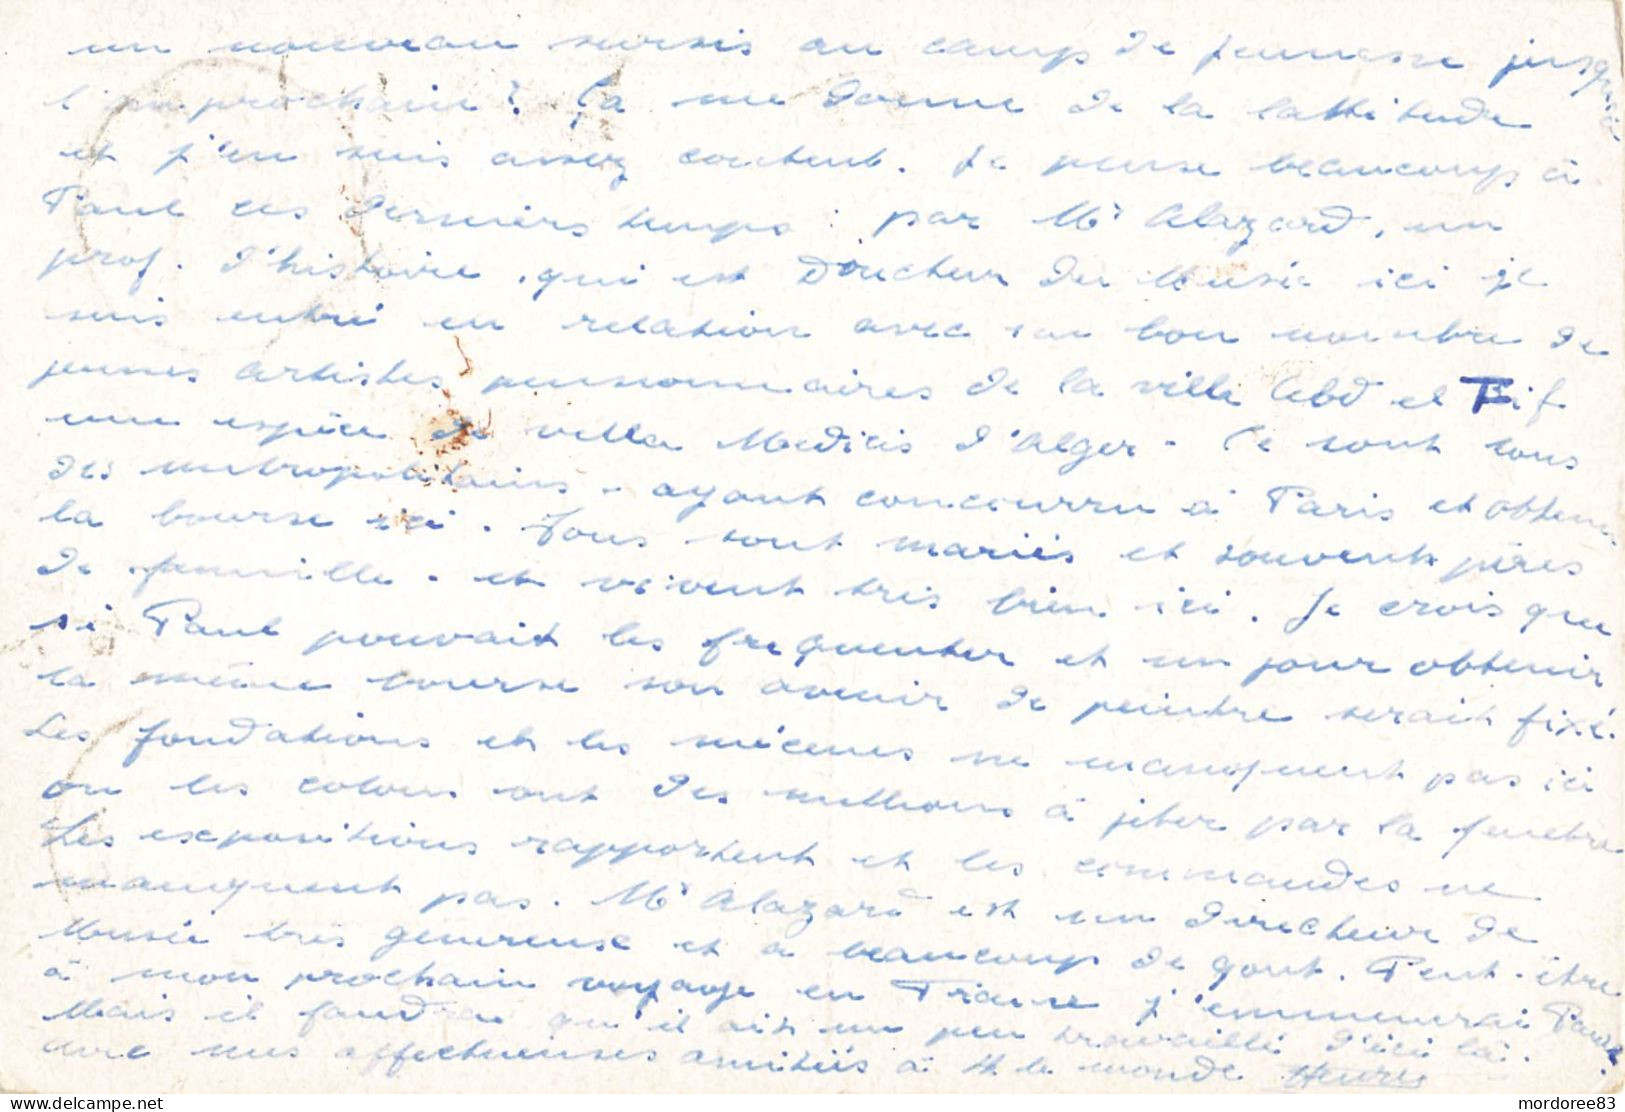 un nouveau sursis au camp de jeunesse jusqu'à
l'an prochain ? Ça me donne de la lattitude
et j'en suis assez content. Je pense beaucoup à
Paul ces derniers temps : par Mr Alazard, un
prof. d'histoire, qui est Directeur du Musée ici je
suis entré en relation avec un bon nombre de
jeunes artistes pensionnaires de la villa Abd el Tif
une espèce de villa Medicis d'Alger - Ce sont tous
des metropolitains - ayant concourru à Paris et obtenu
la bourse ici. Tous sont mariés et souvent pères
de famille - et vivent très bien ici. Je crois que
si Paul pouvait les frequenter et un jour obtenir
la même bourse son avenir de peintre serait fixé.
Les fondations et les mécenes ne manquent pas ici
ou les colons ont des millions à jeter par la fenêtre
Les expositions rapportent et les commandes ne
manquent pas. Mr Alazard est un directeur de
Musée très genereux et a beaucoup de gout. Peut-être
à mon prochain voyage en France j'emmenerai Paul
Mais il faudra qu'il ait un peu travaillé d'ici là.
avec mes affectueuses amitiés à tt le monde
www.delcampe.net
mordoree83